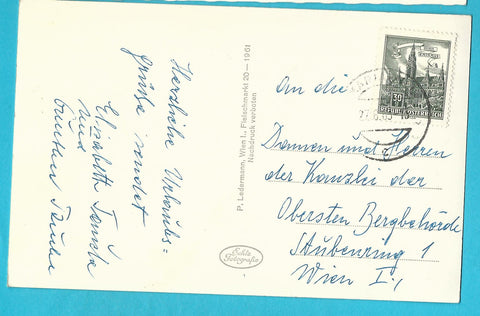 Herzliche Urlaubs=
grüße sendet
Elisabeth
und
P. Ledermann, Wien I., Fleischmarkt 20—1961
Nachdruck verboten
Echte
Fotografie
30
REPUBLIK ÖSTERREICH
An die
Damen und Herren
der Kanzlei der
Obersten Bergbehörde
Stubenring 1
Wien I.,